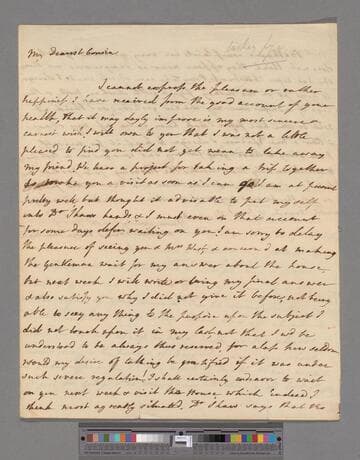 My dearest Cousin
I cannot express the pleasure or rather
happiness I have received from the good account of your
health, that it may dayly improve is my most sincere &
earnest wish, I will own to you that I was not a little
pleased to find you did not mean to take away
my friend, We have a project for taking a trip together
to make you a visit as soon as I can go I am at present
pretty well but thought it adviseable to put myself
into Dr Shaws hands & I must even on that account
for some days defer waiting on you I am sorry to delay
the pleasure of seeing you & Mrs & concerned at making
the Gentleman wait for my answer about the house,
but next week I will write or bring my final answer
& also satisfy you why I did not give it before, not being
able to say any thing to the purpose upon the subject I
did not touch upon it in my last, not that I wd be
understood to be always thus reserved for alas how seldom
would my desire of talking be gratified if it was under
such severe regulation, I shall certainly endeavor to wait
on you next week & visit the House which indeed I
think most agreeably situated, Dr Shaw says that the